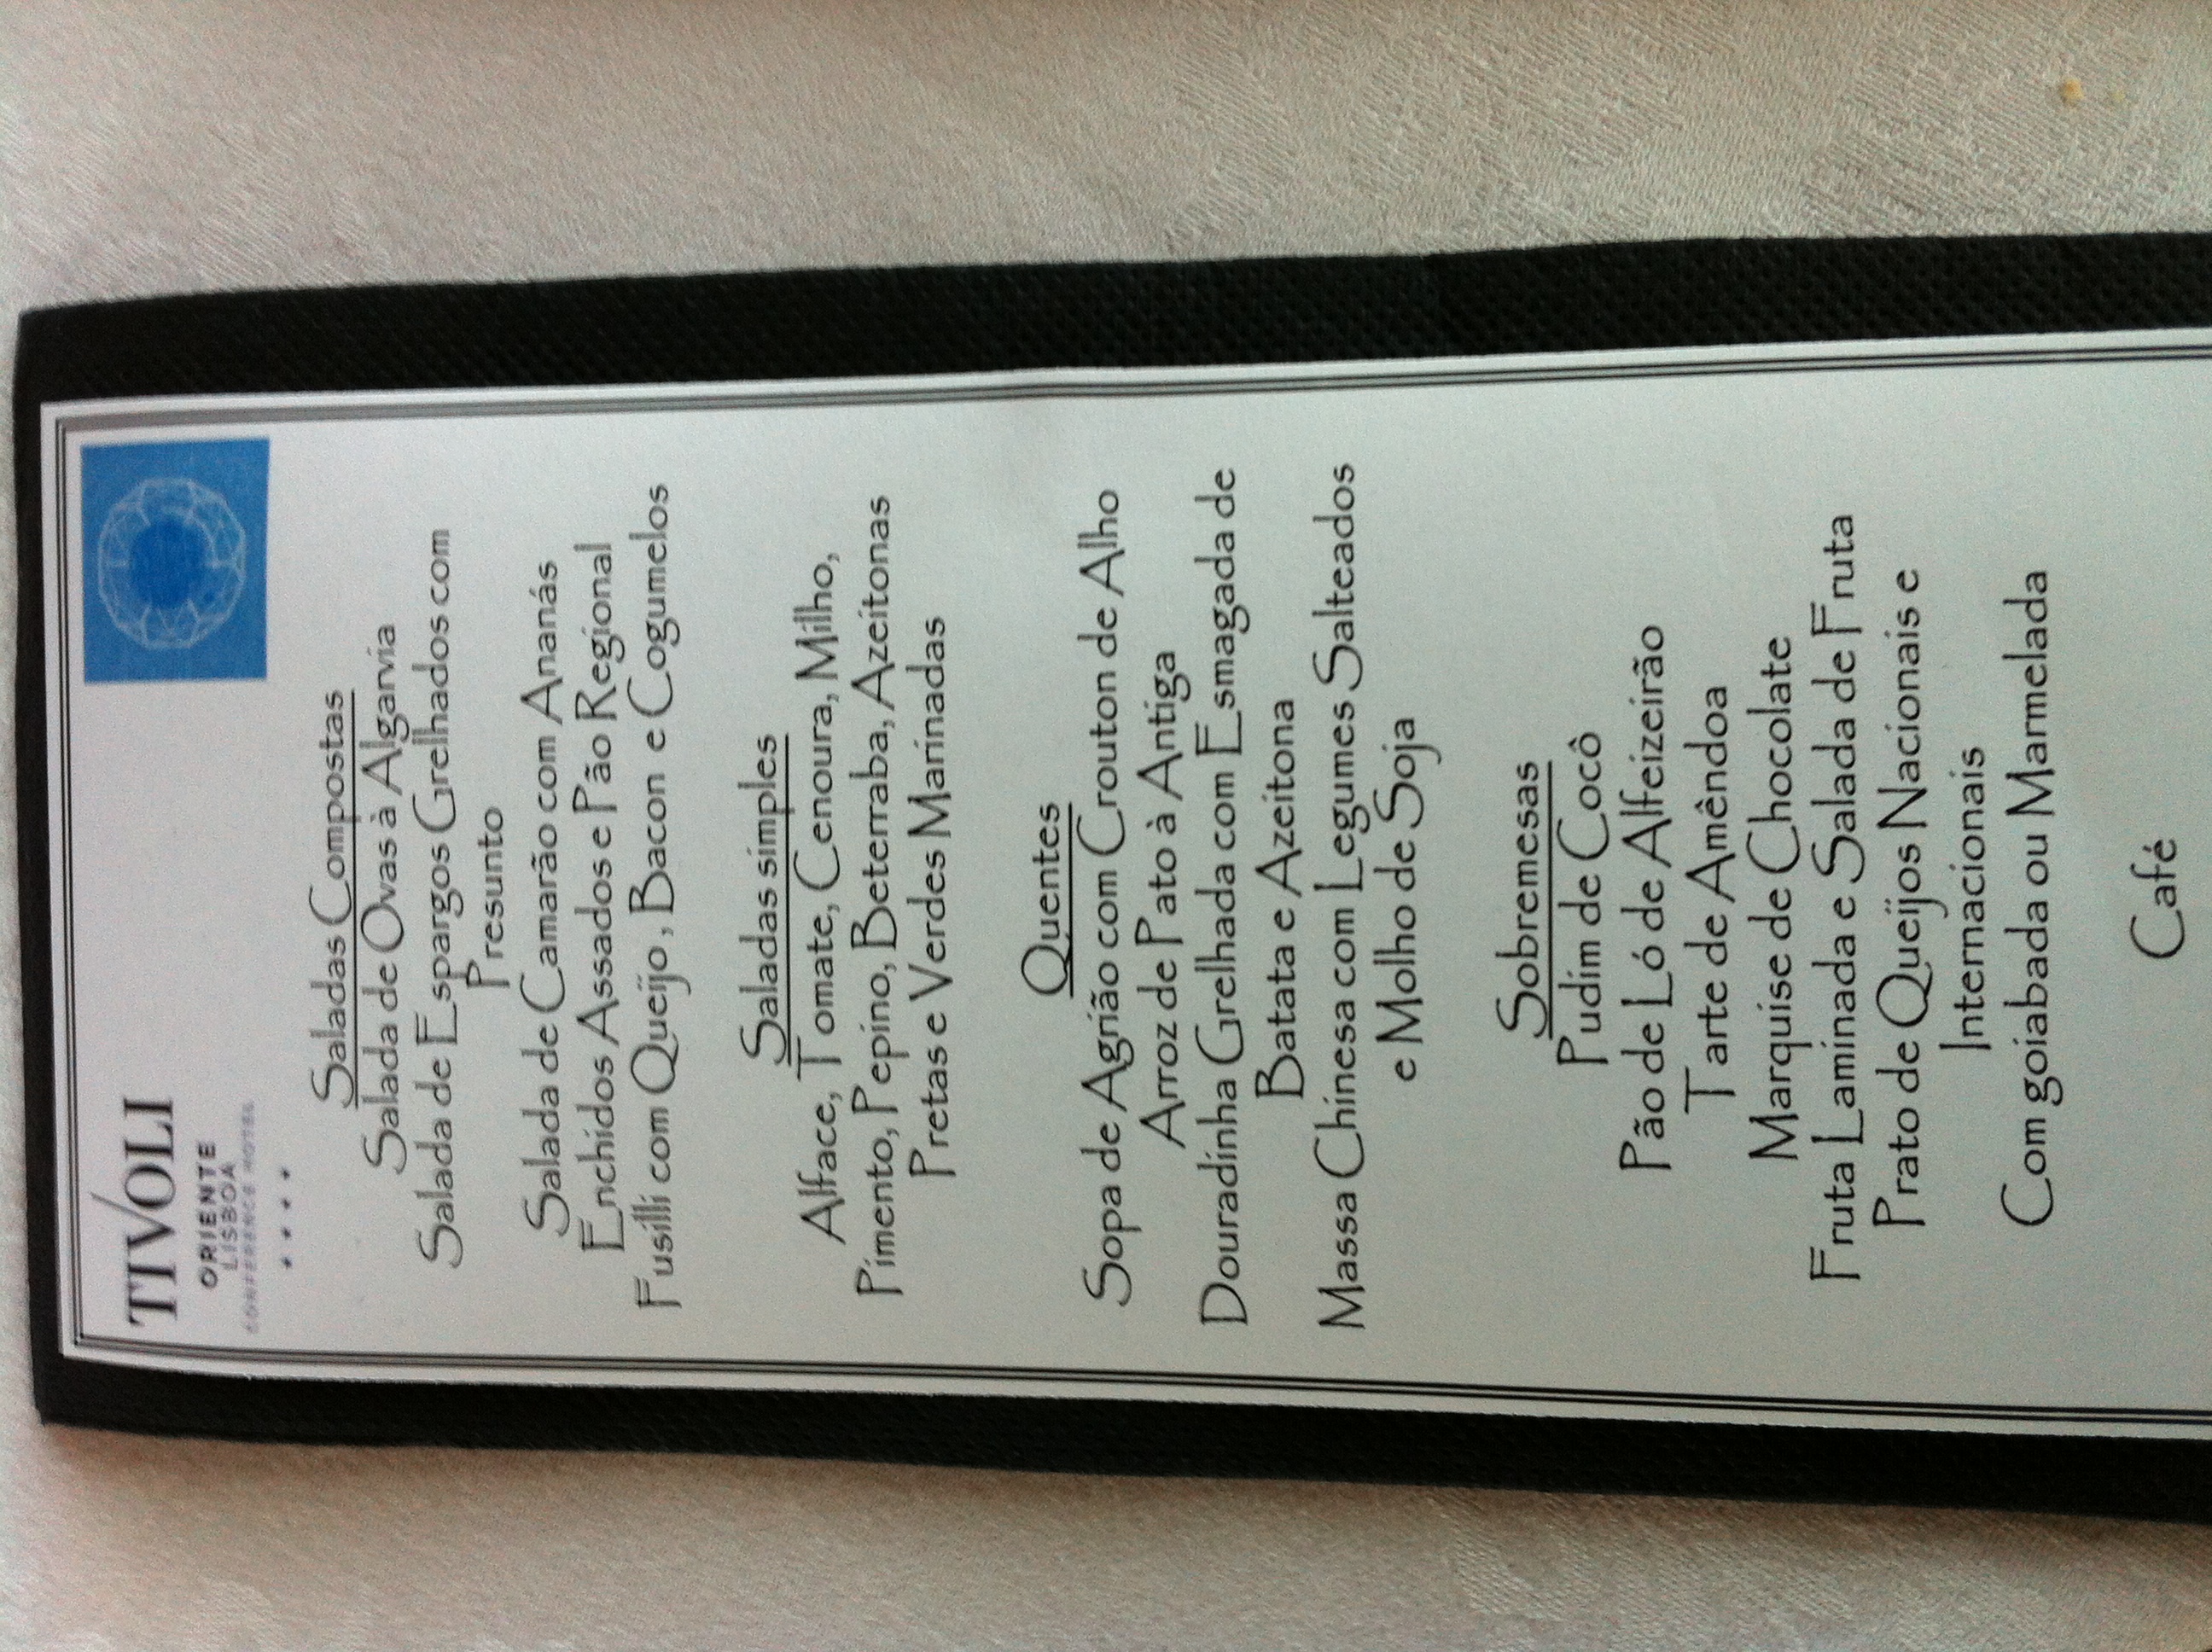 TIVOLI
ORIENTE
LISBOA
CONFERENCE HOTEL
Saladas Compostas
Salada de Ovas à Algarvia
Salada de Espargos Grelhados com
Presunto
Salada de Camarão com Ananás
Enchidos Assados e Pão Regional
Fusilli com Queijo, Bacon e Cogumelos
Saladas simples
Alface, Tomate, Cenoura, Milho,
Pimento, Pepino, Beterraba, Azeitonas
Pretas e Verdes Marinadas
Quentes
Sopa de Agrião com Crouton de Alho
Arroz de Pato à Antiga
Douradinha Grelhada com Esmagada de
Batata e Azeitona
Massa Chinesa com Legumes Salteados
e Molho de Soja
Sobremesas
Pudim de Cocô
Pão de Ló de Alfeizeirão
Tarte de Amêndoa
Marquise de Chocolate
Fruta Laminada e Salada de Fruta
Prato de Queijos Nacionais e
Internacionais
Com goiabada ou Marmelada
Café